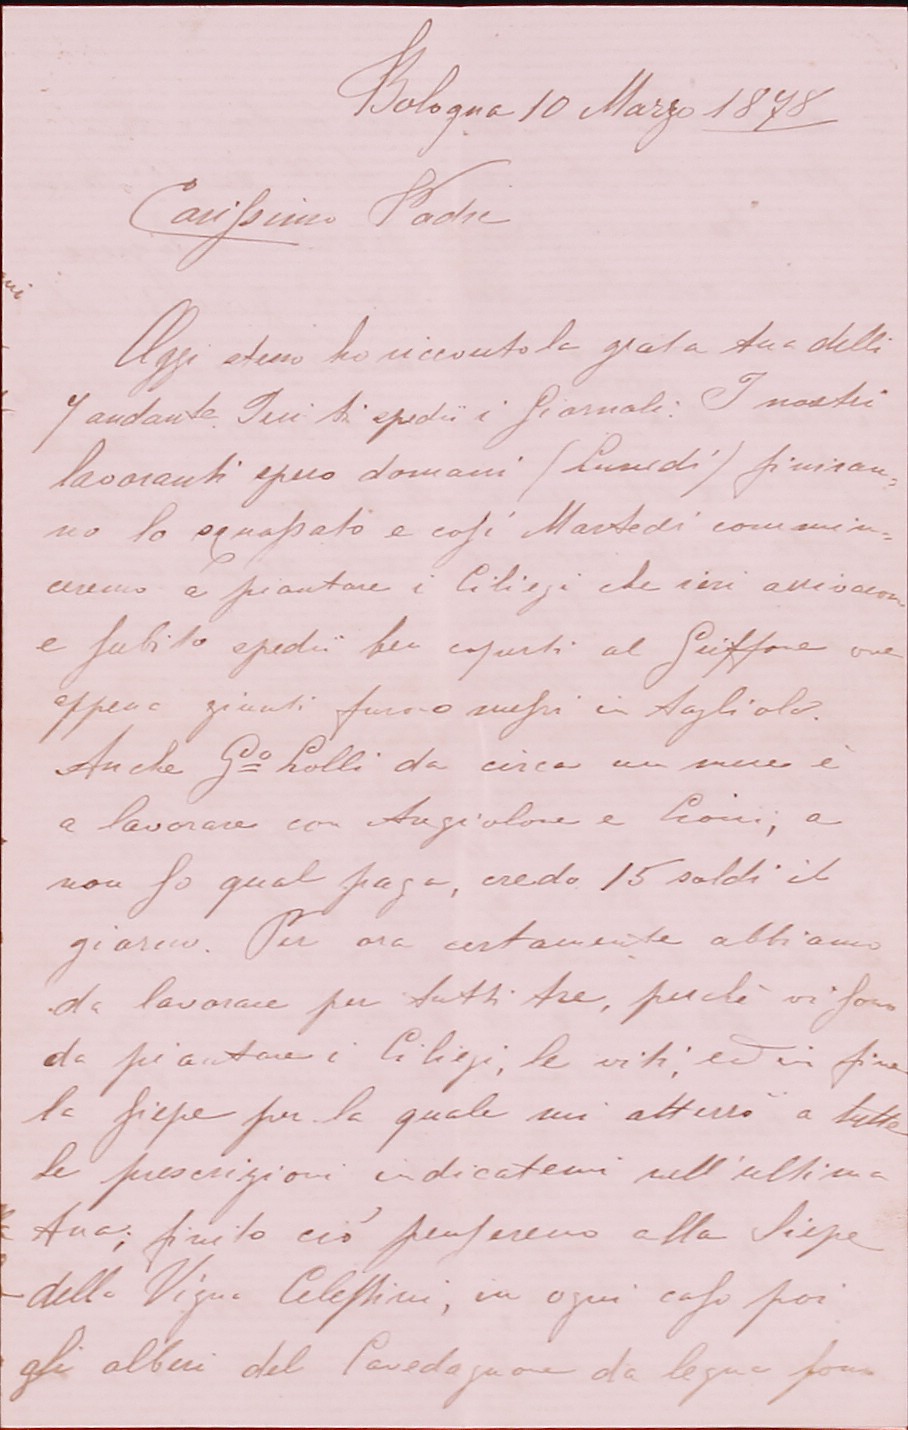 Bologna 10 Marzo 1878
Carissimo Padre
Oggi stesso ho riccevuto la grata tua delli
7 andante. Ieri ti spedii i Giornali. I nostri
lavoranti spero domani (Lunedì) finiran=
no lo squassato e così Martedì commin=
ceremo a piantare i Ciliegi che ieri arrivarono
e subito spedii ben coperti al Griffone ove
appena giunti furono messi in tagliola.
Anche Gº Lolli da circa un mese è
a lavorare con Angiolone e Cioni, a
non so qual paga, credo 15 soldi il
giorno. Per ora certamente abbiamo
da lavorare per tutti tre, perchè vi sono
da piantare i Ciliegi, le viti, ed in fine
la siepe per la quale mi atterrò a tutte
le prescrizioni indicatemi nell'ultima
tua; finito ciò penseremo alla Siepe
della Vigna Celestini, in ogni caso poi
gli alberi del Cavedagnone da legna sono